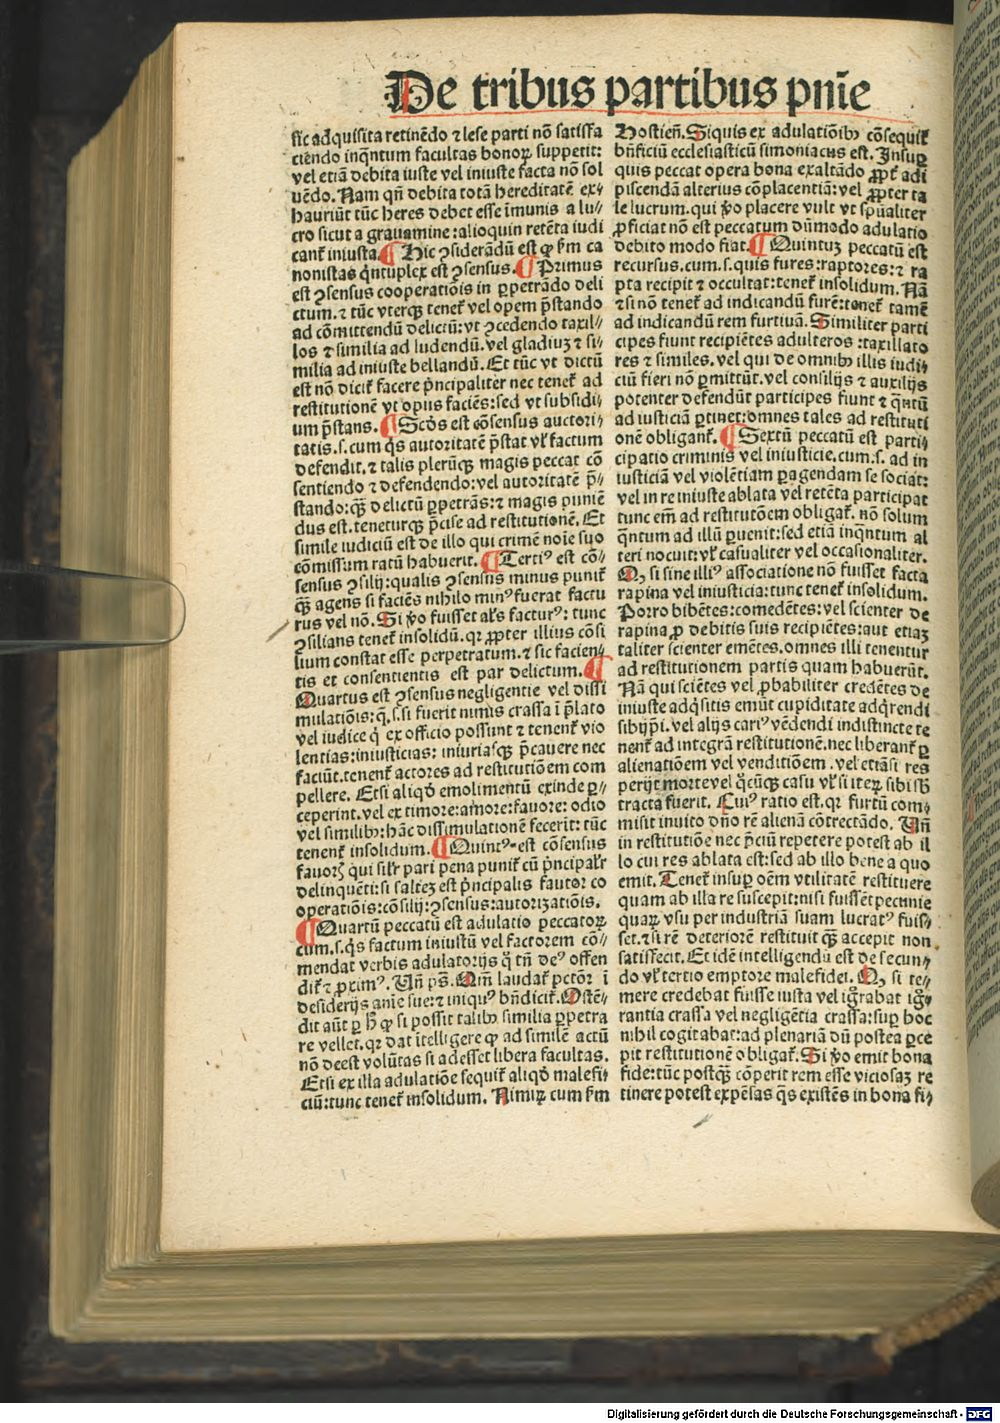 De tribus partibus pnīe
sic adquisita retinēdo ⁊ lese parti nō satisfa
ciendo inq̄ntum facultas bonoꝝ suppetit:
vel etiā debita iuste vel iniuste facta nō sol
uēdo. Nam qn̄ debita totā hereditatē ex⸗
hauriūt tūc heres debet esse īmunis a lu⸗
cro sicut a grauamine: alioquin retēta iudi
cant᷑ iniusta. ¶ Hic ꝯsiderādū est ꝙ ẜm ca
nonistas q̄ntuplex est ꝯsensus. ¶ Primus
est ꝯsensus cooperatiōis in ꝑpetrādo deli
ctum. ⁊ tūc vterqꝫ tenet᷑ vel opem p̄stando
ad cōmittendū delictū: vt ꝯcedendo taxil⸗
los ⁊ similia ad ludendū. vel gladiuꝫ ⁊ si⸗
milia ad iniuste bellandū. Et tūc vt dictū
est nō dicit᷑ facere p̄ncipaliter nec tenet᷑ ad
restitutionē vt opus faciēs: sed vt subsidi⸗
um p̄stans. ¶ Scd̄s est cōsensus auctori⸗
tatis. s. cum q̄s autoritatē p̄stat vl᷑ factum
defendit. ⁊ talis plerūqꝫ magis peccat cō
sentiendo ⁊ defendendo: vel autoritatē p̄⸗
stando: qꝫ̄ delictū ꝑpetrās: ⁊ magis puniē
dus est. teneturqꝫ p̄cise ad restitutionē. Et
simile iudiciū est de illo qui crimē noīe suo
cōmissum ratū habuerit. ¶ Tertiꝰ est cō⸗
sensus ꝯsilij: qualis ꝯsensus minus punit᷑
qꝫ̄ agens si faciēs nihilo minꝰ fuerat factu
rus vel nō. Si ꝟo fuisset al̓s facturꝰ: tunc
ꝯsilians tenet᷑ insolidū. qꝛ ꝓpter illius cōsi
lium constat esse perpetratum. ⁊ sic facien⸗
tis et consentientis est par delictum. ¶
Quartus est ꝯsensus negligentie vel dissi
mulatiōis: q̄. s. si fuerit nimis crassa ī p̄lato
vel iudice q̇ ex officio possunt ⁊ tenent᷑ vio
lentias: iniusticias: iniuriasqꝫ p̄cauere nec
faciūt. tenent᷑ actores ad restitutiōem com
pellere. Etsi aliqd̓ emolimentū exinde ꝑ⸗
ceperint. vel ex timore: amore: fauore: odio
vel similibꝰ: hāc dissimulationē fecerit: tūc
tenent᷑ insolidum. ¶ Quintꝰ est cōsensus
fauorꝫ qui sil᷑r pari pena punit᷑ cū p̄ncipal᷑r
delinquēti: si salteꝫ est p̄ncipalis fautor co
operatiōis: cōsilij: ꝯsensus: autorizatiōis.
¶ Quartū peccatū est adulatio peccatoꝝ
cum. s. q̄s factum iniustū vel factorem cō⸗
mendat verbis adulatorijs q̇ tn̄ deꝰ offen
dit᷑ ⁊ ꝓximꝰ. Vn̄ ps̄. Qm̄ laudat᷑ pctōr ī
desiderijs anīe sue: ⁊ iniquꝰ bn̄dicit᷑. Ostē⸗
dit aūt ꝑ h̓ ꝙ si possit talibꝰ similia ꝑpetra
re vellet. qꝛ dat ītelligere ꝙ ad similē actū
nō deest volūtas si adesset libera facultas.
Etsi ex illa adulatiōe sequit᷑ aliqd̓ malefi⸗
ciū: tunc tenet᷑ insolidum. Nimiꝝ cum ẜm
Hostien̄. Siquis ex adulatiōibꝰ cōsequit᷑
bn̄ficiū ecclesiasticū simoniacus est. Insuꝑ
quis peccat opera bona exaltādo ꝓpt᷑ adi
piscendā alterius cōplacentiā: vel ꝓpter ta
le lucrum. qui ꝟo placere vult vt spūaliter
ꝓficiat nō est peccatum dūmodo adulatio
debito modo fiat. ¶ Quintuꝫ peccatū est
recursus. cum. s. quis fures: raptores: ⁊ ra
pta recipit ⁊ occultat: tenet᷑ insolidum. Nā
⁊ si nō tenet᷑ ad indicandū furē: tenet᷑ tamē
ad indicandū rem furtiuā. Similiter parti
cipes fiunt recipiētes adulteros: taxillato
res ⁊ similes. vel qui de omnibꝰ illis iudi⸗
ciū fieri nō ꝑmittūt. vel consilijs ⁊ auxilijs
potenter defendūt participes fiunt ⁊ q̄ntū
ad iusticiā ꝑtinet: omnes tales ad restituti
onē obligant᷑. ¶ Sextū peccatū est parti⸗
cipatio criminis vel iniusticie. cum. s. ad in
iusticiā vel violētiam ꝑagendam se sociat:
vel in re iniuste ablata vel retēta participat
tunc em̄ ad restitutōem obligat᷑. nō solum
q̄ntum ad illū ꝑuenit: sed etiā inq̄ntum al
teri nocuit: vl᷑ casualiter vel occasionaliter.
Qꝫ si sine illiꝰ associatione nō fuisset facta
rapina vel iniusticia: tunc tenet᷑ insolidum.
Porro bibētes: comedētes: vel scienter de
rapina ꝓ debitis suis recipiētes: aut etiaꝫ
taliter scienter emētes. omnes illi tenentur
ad restitutionem partis quam habuerūt.
Nā qui sciētes vel ꝓbabiliter credētes de
iniuste adq̇sitis emūt cupiditate adq̇rendi
sibijp̄i. vel alijs cariꝰ vēdendi indistincte te
nent᷑ ad integrā restitutionē. nec liberant᷑ ꝑ
alienatiōem vel venditiōem. vel etiāsi res
perijt morte vel q̇cūqꝫ casu vl᷑ si iteꝝ sibi sb̓
tracta fuerit. Cuiꝰ ratio est. qꝛ furtū com⸗
misit inuito dn̄o rē alienā cōtrectādo. Vn̄
in restitutiōe nec p̄ciū repetere potest ab il
lo cui res ablata est: sed ab illo bene a quo
emit. Tenet᷑ insuꝑ oēm vtilitatē restituere
quam ab illa re suscepit: nisi fuissēt pecunie
quaꝝ vsu per industriā suam lucratꝰ fuis⸗
set. ⁊ si rē deteriorē restituit qꝫ̄ accepit non
satisfecit. Et idē intelligendū est de secun⸗
do vl᷑ tertio emptore malefidei. Qꝫ si te⸗
mere credebat fuisse iusta vel ig̅rabat ig̅⸗
rantia crassa vel negligētia crassa: suꝑ hoc
nihil cogitabat: ad plenariā dū postea ꝑce
pit restitutionē obligat᷑. Si ꝟo emit bona
fide: tūc postqꝫ̄ cōperit rem esse viciosaꝫ re
tinere potest expēsas q̄s existēs in bona fi⸗
Digitalisierung gefördert durch die Deutsche Forschungsgemeinschaft - DFG